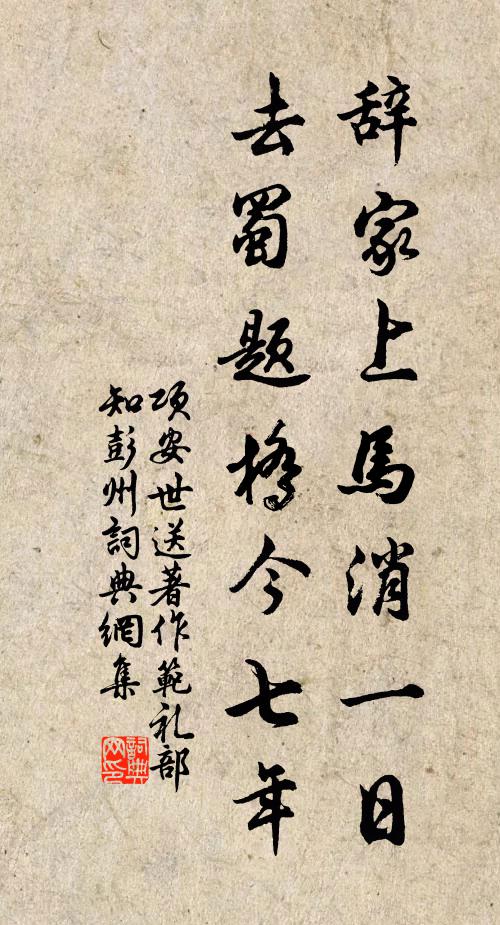 辞家上馬消一日
去蜀題橋今七年
項安世送著作範礼部
知彭州詞典網集
詞典網印